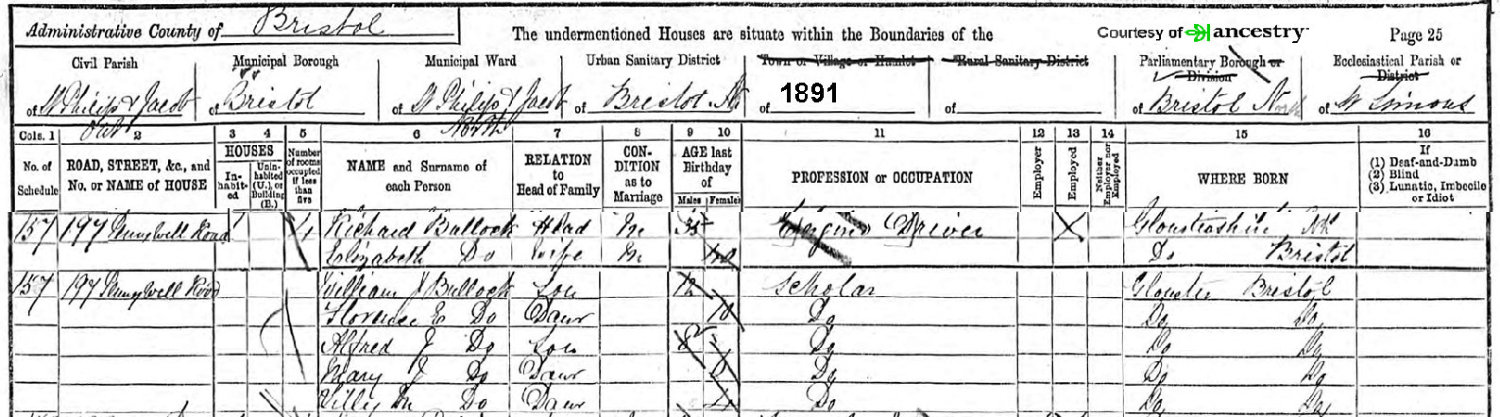 Administrative County of Bristol The undermentioned Houses are situate within the Boundaries of the Courtesy of ancestry Page 25
Civil Parish Municipal Borough Municipal Ward Urban Sanitary District Town or Village or Hamlet Rural Sanitary District Parliamentary Borough or Division Ecclesiastical Parish or District
of St Philip & Jacob Out of Bristol of St Philip & Jacob North of Bristol of 1891 of of Bristol North of St Simons
Cols. 1 2 3 4 5 6 7 8 9 10 11 12 13 14 15 16
No. of Schedule ROAD, STREET, &c., and No. or NAME of HOUSE HOUSES Inhabited Uninhabited (U.), or Building (B.) Number of rooms occupied if less than five NAME and Surname of each Person RELATION to Head of Family CONDITION as to Marriage AGE last Birthday of Males Females PROFESSION or OCCUPATION Employer Employed Neither Employer nor Employed WHERE BORN If (1) Deaf-and-Dumb (2) Blind (3) Lunatic, Imbecile or Idiot
157 197 Pennywell Road 1 4 Richard Bullock Head M 35 Engine Driver X Gloucestershire
Elizabeth Do Wife M 40 Do Bristol
157 197 Pennywell Road William J Bullock Son 12 Scholar Glouster Bristol
Florence E Do Daur 10 Do Do Do
Alfred J Do Son 8 Do Do Do
Mary J Do Daur Do Do Do
M Do Daur 4 Do Do Do